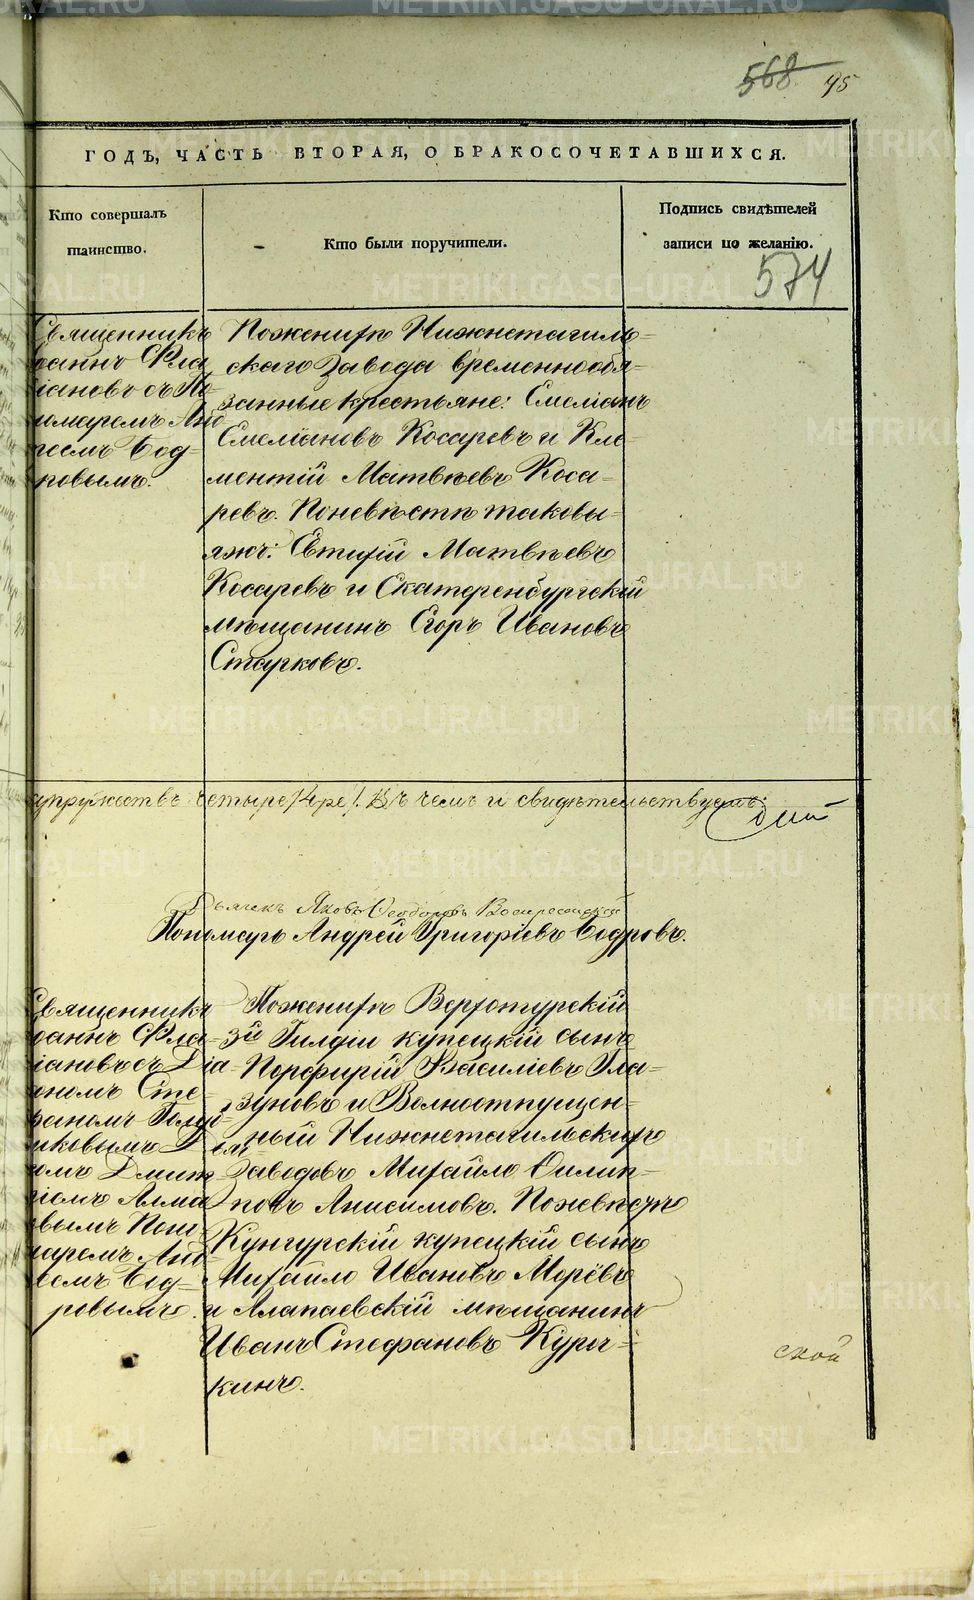 568 95
ГОДЪ, ЧАСТЬ ВТОРАЯ, О БРАКОСОЧЕТАВШИХСЯ.
Кто совершалъ
таинство.
Кто были поручители.
Подпись свидѣтелей
записи по желанію.
574
Священникъ
оаннъ Фла
іановъ съ По
номаремъ Анд
реемъ Бод-
ровымъ.
По женихѣ Нижнетагиль-
скаго Завода временнообя-
занные крестьяне: Емеліанъ
Емеліановъ Косаревъ и Кле-
ментій Матвѣевъ Коса-
ревъ. По невѣстѣ таковы-
яже: Евтихій Матвѣевъ
Косаревъ и Екатеренбургскій
мѣщанинъ Егоръ Ивановъ
Старковъ.
супружествъ четыре /4ре/. Въ чемъ и свидѣтельствуемъ:
Дьячекъ Яковъ Ѳеодоровъ Воскресенскій
Пономарь Андрей Григоріевъ Бодровъ.
Священникъ
оаннъ Фла-
іановъ съ Діа-
кономъ Сте-
фаномъ
ровымъ.
По женихѣ Верхотурскій
3й Гилдіи купецкій сынъ
Порфирій Васильевъ Гла-
зуновъ и Волноотпущен-
ный Нижнетагильскихъ
Заводовъ Михайло Филип-
повъ Анисимовъ. По невѣстѣ
Кунгурскій купецкій сынъ
Михайло Ивановъ
и Алапаевскій мѣщанинъ
Иванъ Стефановъ
кинъ.
ской